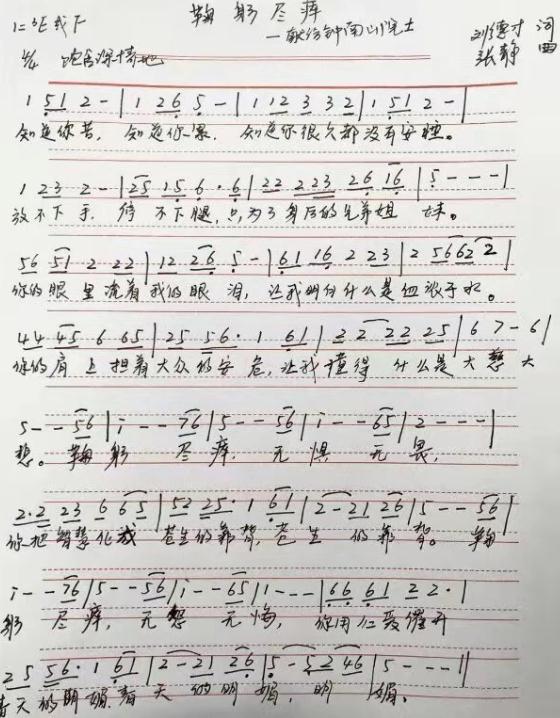 鞠躬尽瘁
1=♭E或F —献给钟南山院士 刘德才 词
4/4 饱含深情地 张静 曲
1 51 2 - | 1 26 5 - | 1 12 3 32 | 1 51 2 - |
知道你苦, 知道你累, 知道你很久都没有安睡。
1 23 2 - | 25 15 6 · 6 | 22 223 26 16 | 5 - - - |
放不下手, 停不下腿, 只为了身后的兄弟姐妹。
56 51 2 22 | 12 26 5 - | 61 16 2 23 | 2 5662 2 |
你的眼里流着我的眼泪, 让我明白什么是血浓于水。
44 45 6 65 | 25 56· 1 61 | 2 2 22 25 | 6 7 - 6 |
你的肩上担着大众的安危, 让我懂得什么是大慈大
5 - - 56 | i - - 76 | 5 - - 56 | i - - 65 | 2 - - - |
悲。鞠躬尽瘁, 无惧无畏,
2·2 23 6 65 | 52 25· 1 61 | 2 - 21 26 | 5 - - 56 |
你把智慧化成苍生的靠背, 苍生的靠背。鞠
i - - 76 | 5 - - 56 | i - - 65 | 1 - - - | 66 61 2 2· |
躬尽瘁, 无怨无悔, 你用仁爱催开
25 56· 1 61 | 2 - 21 26 | 5 - 52 46 | 5 - - - ||
春天的明媚, 春天的明媚, 明媚。